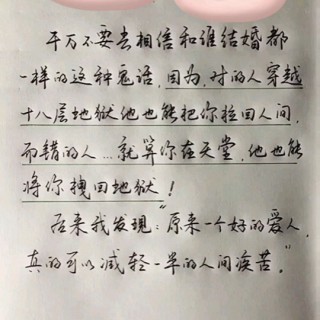 千万不要去相信和谁结婚都
一样的这种鬼话,因为,对的人穿越
十八层地狱他也能把你拉回人间,
而错的人...就算你在天堂,他也能
将你拽回地狱!
后来我发现:"原来一个好的爱人,
真的可以减轻一半的人间疾苦。"